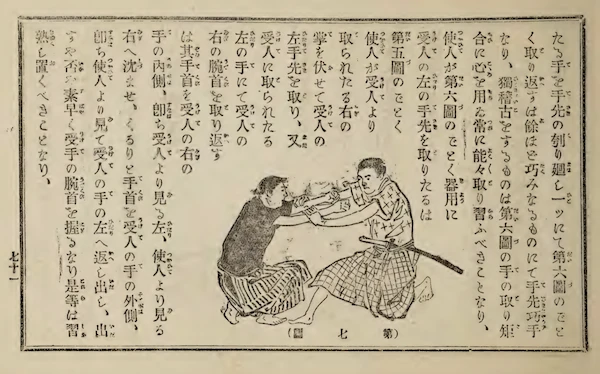 たる手を手先の刳り廻し一ッにて第六圖のごと
く取り返すは餘ほど巧みなるものにて手先巧手
なり、獨稽古をするものは第六圖の手の取り矩
合に心を用ゐ常に能々取り習ふべきことなり、
使人が第六圖のごとく器用に
受人の左の手先を取りたるは
第五圖のごとく
使人が受人より
取られたる右の
掌を伏せて受人の
左手先を取り、又
受人に取られたる
左の手にて受人の
右の腕首を取り返す
は其手首を受人の右の
手の內側、卽ち受人より見る左、使人より見る
右へ沈ませ、くるりと手首を受人の手の外側、
卽ち使人より見て受人の手の左へ返し出し、出
すや否な素早く受手の腕首を握るなり是等は習
熟し置くべきことなり、
(第七圖)
七十一